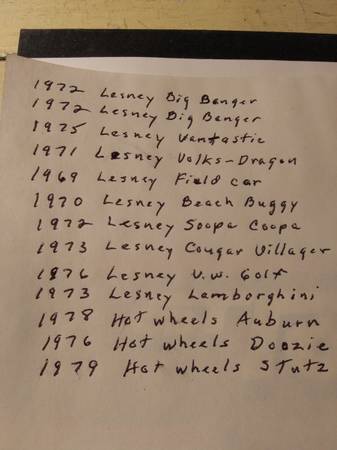 1972 Lesney Big Banger
1972 Lesney Big Banger
1975 Lesney Vantastic
1971 Lesney Volks-Dragon
1969 Lesney Field car
1970 Lesney Beach Buggy
1972 Lesney Soopa Coopa
1973 Lesney Cougar Villager
1976 Lesney V.W. Golf
1973 Lesney Lamborghini
1978 Hot wheels Auburn
1976 Hot wheels Doozie
1979 Hot wheels Stutz